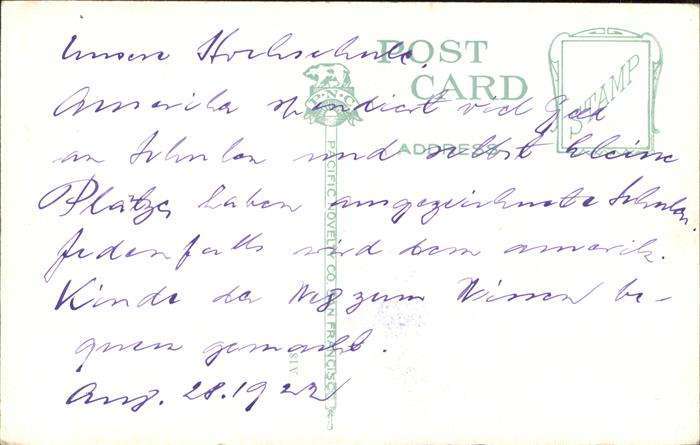 Unsere Hochschule.
POST CARD
P.N.C.
Amerika spendiert viel Geld
STAMP
an Schulen und selbst kleine
ADDRESS
Plätze haben ausgezeichnete Schulen.
Jedenfalls wird dem amerik.
Kinde der Weg zum Wissen be-
quem gemacht.
Aug. 28. 1922
PACIFIC NOVELTY CO. SAN FRANCISCO